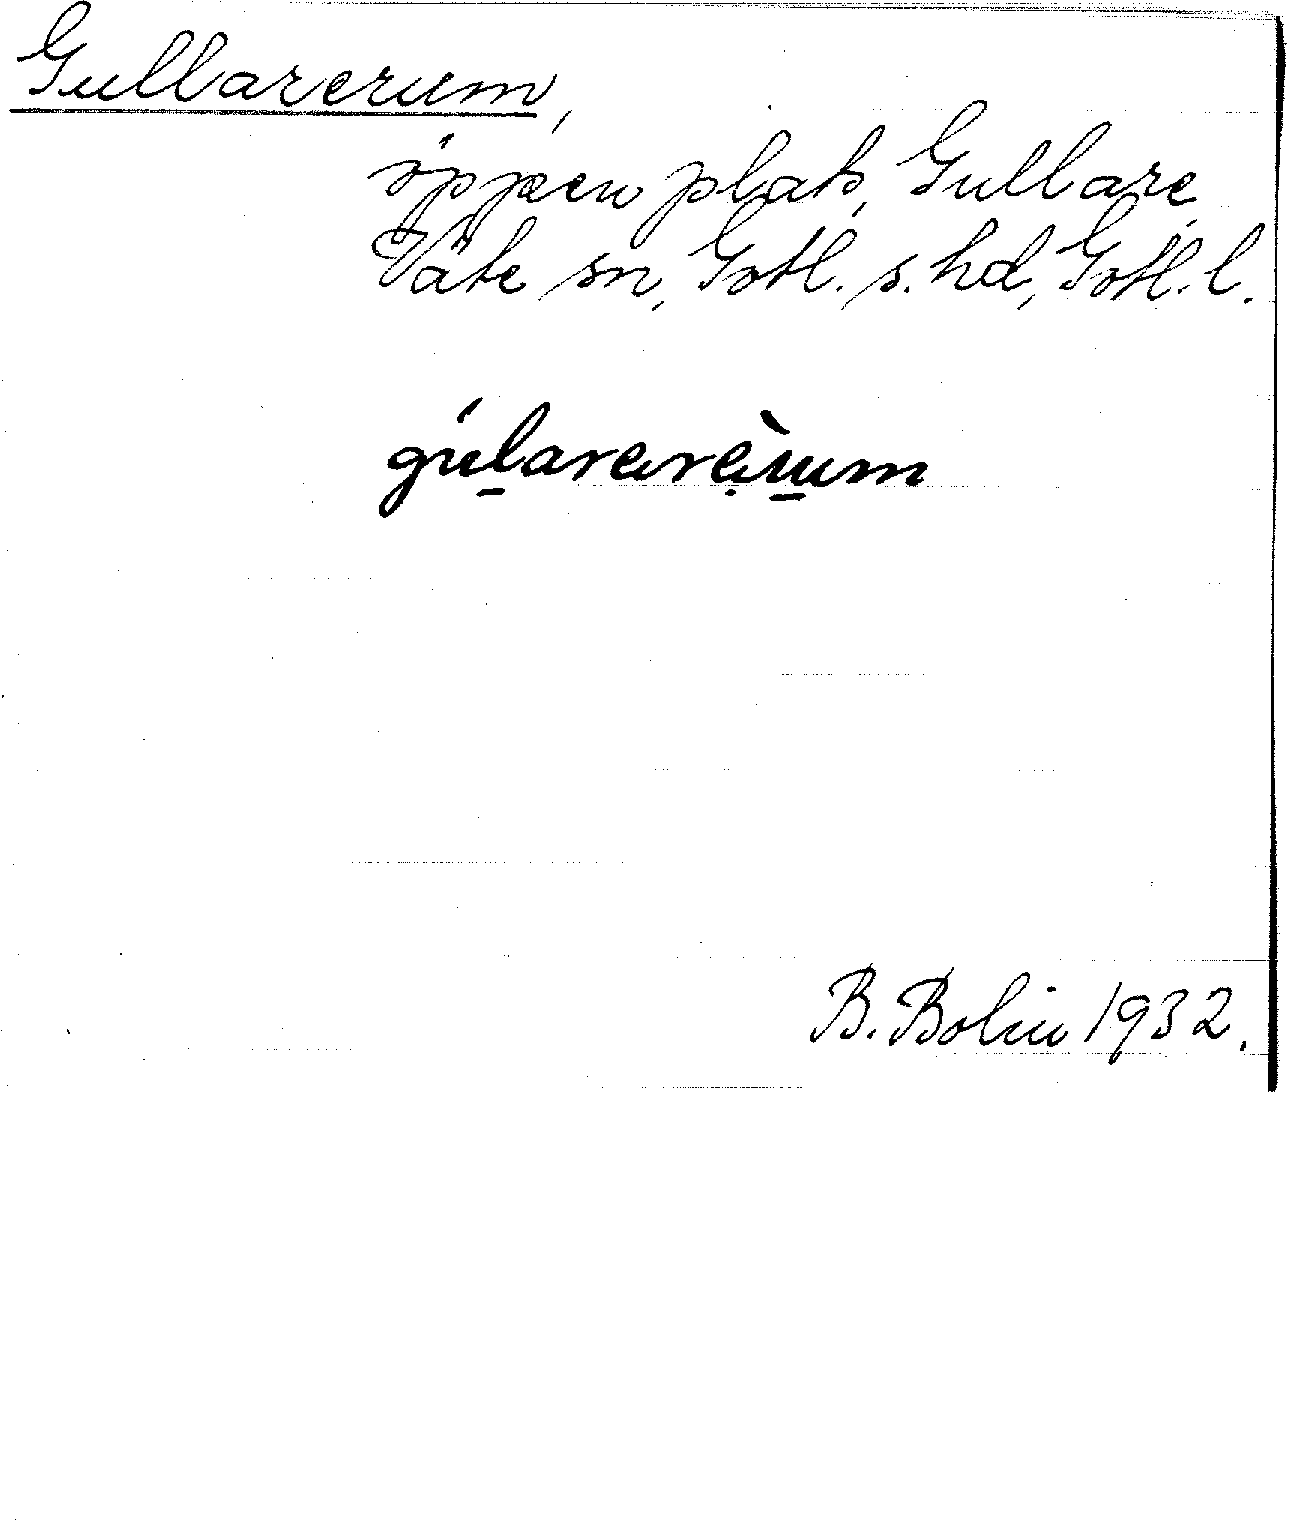 Gullarerum,
öppen plats, Gullare,
Väte sn, Gotl. s. hd, Gotl. l.
B. Bolin 1932.